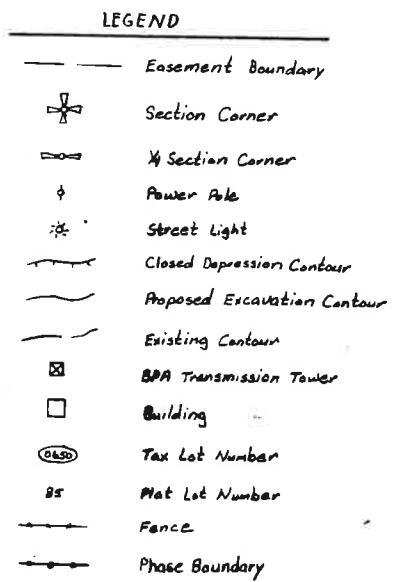 LEGEND
Easement Boundary
Section Corner
¼ Section Corner
Power Pole
Street Light
Closed Depression Contour
Proposed Excavation Contour
Existing Contour
BPA Transmission Tower
Building
0650 Tax Lot Number
85 Plat Lot Number
Fence
Phase Boundary